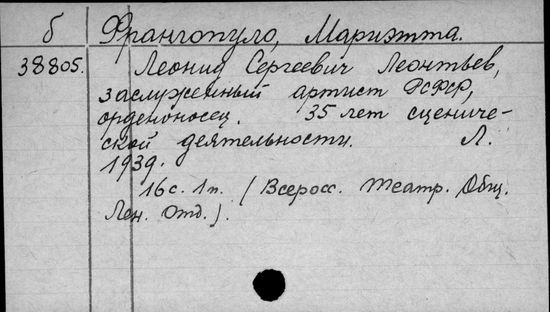 б Франгопуло, Мариэтта.
38805. Леонид Сергеевич Леонтьев,
заслуженный артист РСФСР,
орденоносец. 35 лет сцениче-
ской деятельности. Л.
1939.
16 с. 1 п. (Всеросс. Театр. Общ.
Лен. Отд.).